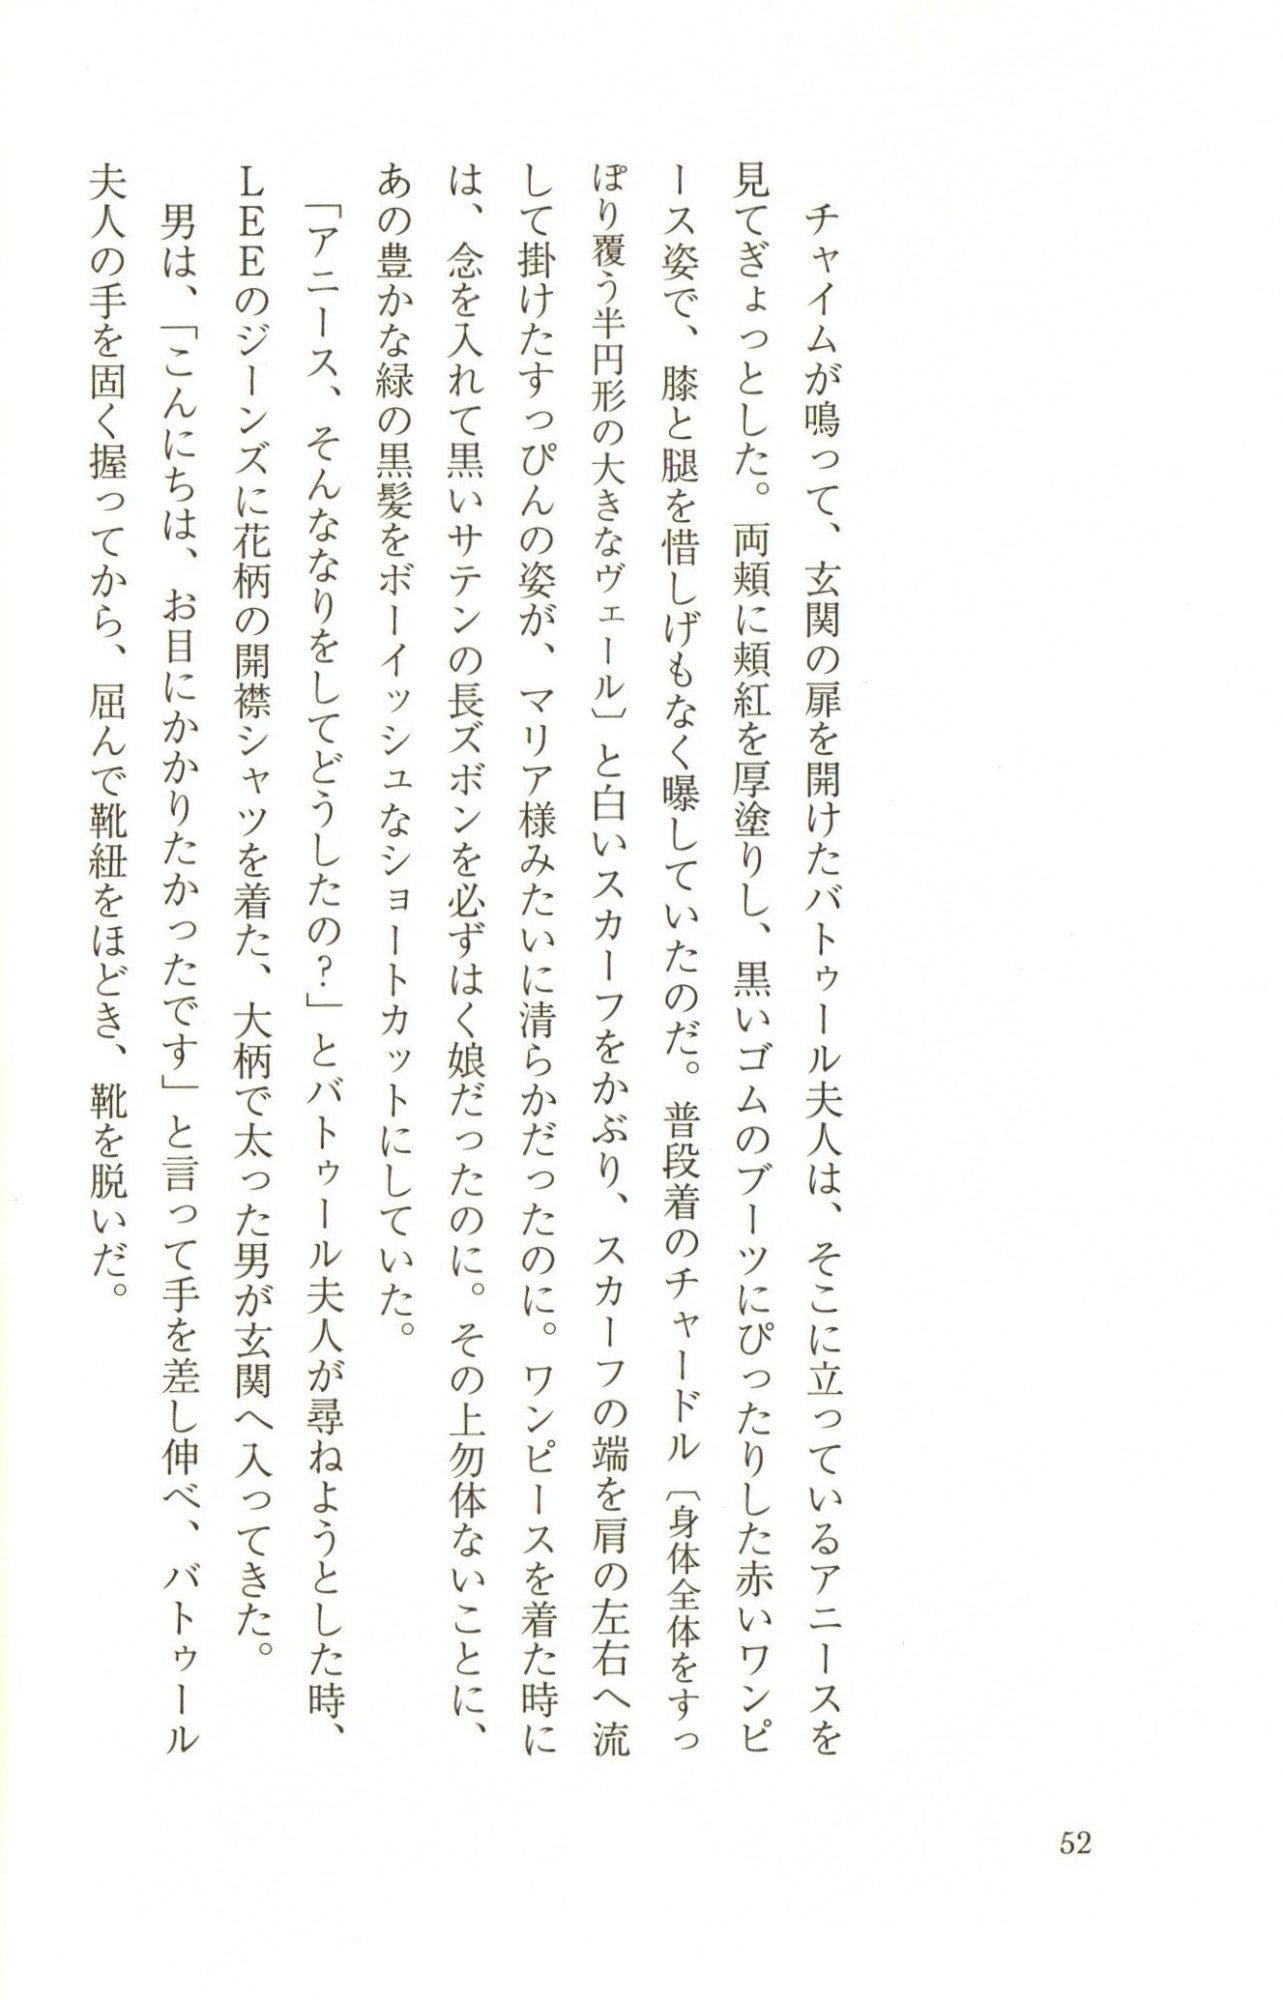 チャイムが鳴って、玄関の扉を開けたバトゥール夫人は、そこに立っているアニースを
見てぎょっとした。両頬に頬紅を厚塗りし、黒いゴムのブーツにぴったりした赤いワンピ
ース姿で、膝と腿を惜しげもなく曝していたのだ。普段着のチャードル〔身体全体をすっ
ぽり覆う半円形の大きなヴェール〕と白いスカーフをかぶり、スカーフの端を肩の左右へ流
して掛けたすっぴんの姿が、マリア様みたいに清らかだったのに。ワンピースを着た時に
は、念を入れて黒いサテンの長ズボンを必ずはく娘だったのに。その上勿体ないことに、
あの豊かな緑の黒髪をボーイッシュなショートカットにしていた。
「アニース、そんななりをしてどうしたの？」とバトゥール夫人が尋ねようとした時、
ＬＥＥのジーンズに花柄の開襟シャツを着た、大柄で太った男が玄関へ入ってきた。
男は、「こんにちは、お目にかかりたかったです」と言って手を差し伸べ、バトゥール
夫人の手を固く握ってから、屈んで靴紐をほどき、靴を脱いだ。
52